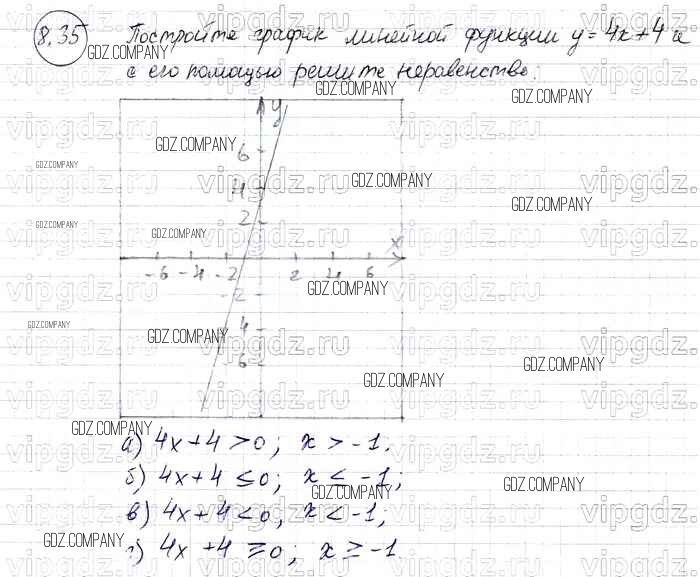 8.35 Постройте график линейной функции y = 4x + 4 и
с его помощью решите неравенство:
y
6
4
2
x
-6 -4 -2 2 4 6
-2
4
6
а) 4x + 4 > 0; x > -1.
б) 4x + 4 ≤ 0; x ≤ -1;
в) 4x + 4 < 0; x < -1;
г) 4x + 4 ≥ 0; x ≥ -1
GDZ.COMPANY
vipgdz.ru